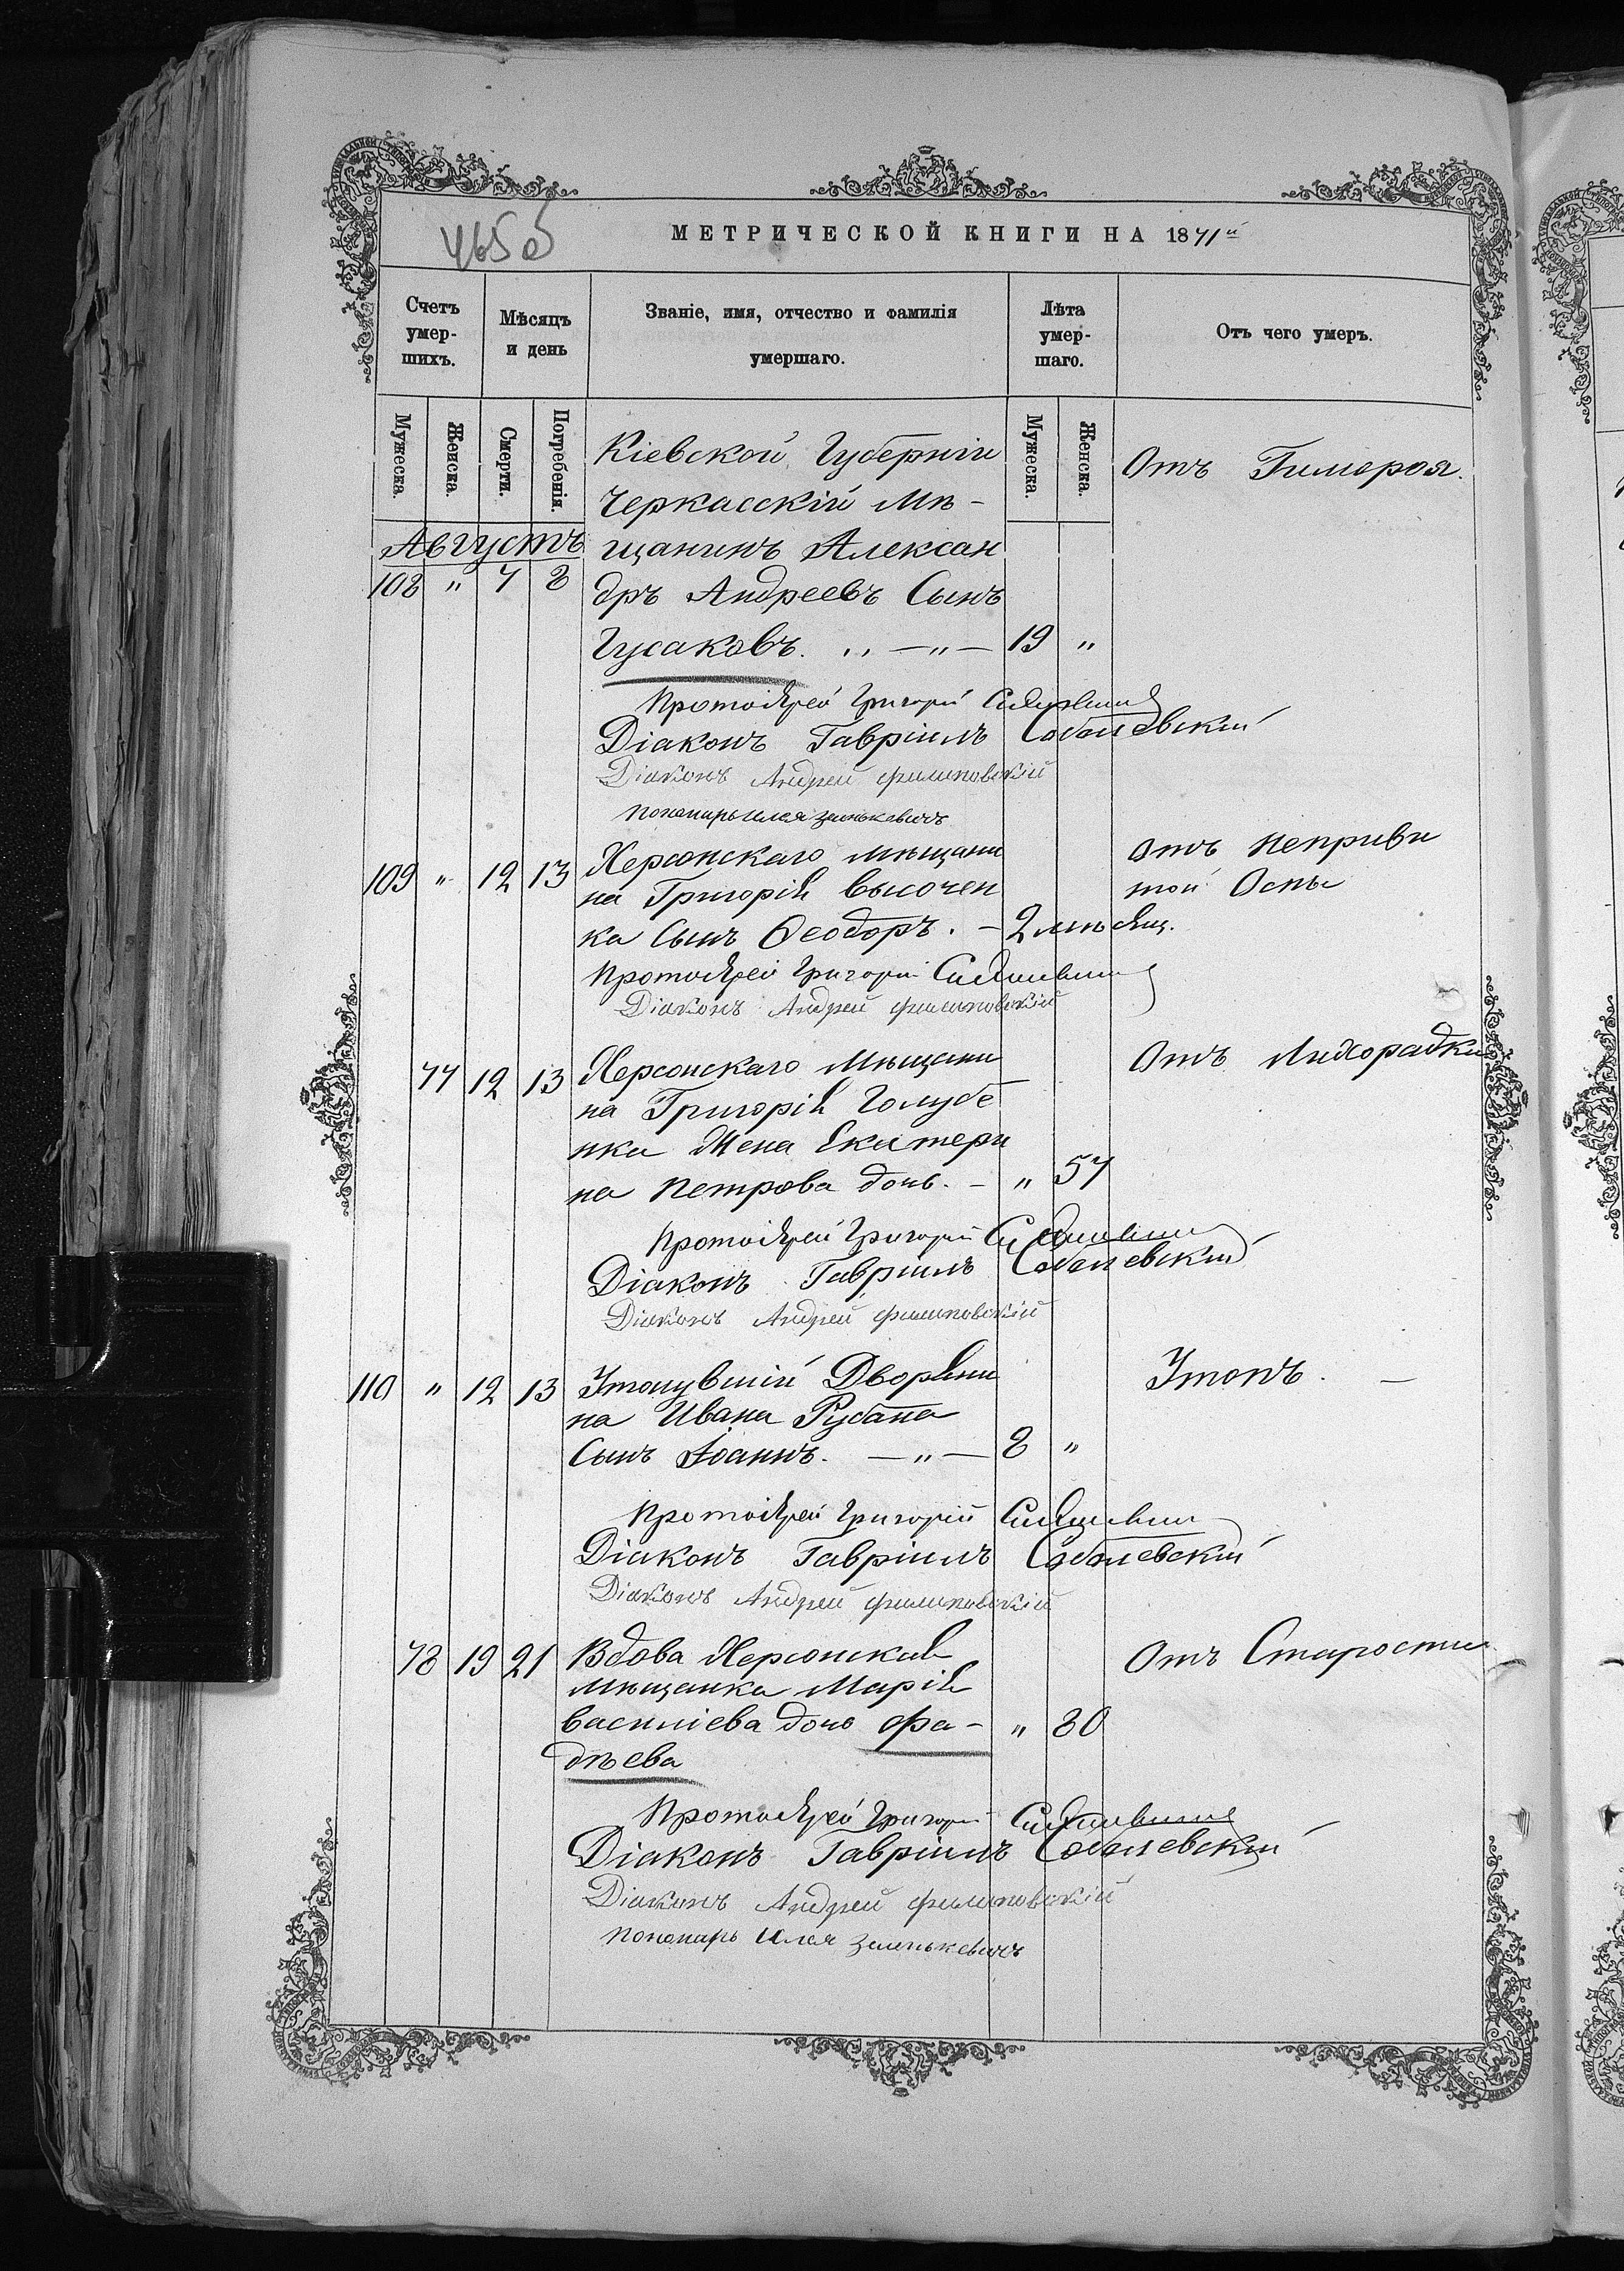 465 об
МЕТРИЧЕСКОЙ КНИГИ НА 1871й
Счетъ умер-шихъ.
Мѣсяцъ и день
Званіе, имя, отчество и фамилія умершаго.
Лѣта умер-шаго.
Отъ чего умеръ.
Мужеска.
Женска.
Смерти.
Погребенія.
Мужеска.
Женска.
Августъ
Кіевской Губерніи
Отъ
Черкасскій Мѣ-
щанинъ Алексан
108 " 7 8 дръ Андреевъ Сынъ
Гусаковъ. " — " — 19 "
Протоіерей Григорій
Діаконъ Гавріилъ Соболевскій
Діаконъ Андрей Филиповскій
Пономарь Илія Зинькевичъ
109 " 12 13 Херсонскаго мѣщани
отъ неприви
на Григорія Высочен
той Оспы
ка Сынъ Ѳеодоръ. — 2 мѣсяц.
Протоіерей Григорій
Діаконъ Андрей Филиповскій
77 12 13 Херсонскаго Мѣщани
Отъ Лихорадки
на Григорія Голубе
нка Жена Екатери
на Петрова дочь. — " 57
Протоіерей Григорій
Діаконъ Гавріилъ Соболевскій
Діаконъ Андрей Филиповскій
110 " 12 13 Утонувшій Дворяни
Утопъ. —
на Ивана Рубана
Сынъ Іоаннъ. — " — 8 "
Протоіерей Григорій
Діаконъ Гавріилъ Соболевскій
Діаконъ Андрей Филиповскій
78 19 21 Вдова Херсонская
Отъ Старости
Мѣщанка Марія
Василіева дочь Фа- " 80
дѣева
Протоіерей Григорій
Діаконъ Гавріилъ Соболевскій
Діаконъ Андрей Филиповскій
Пономарь Илія Зинькевичъ